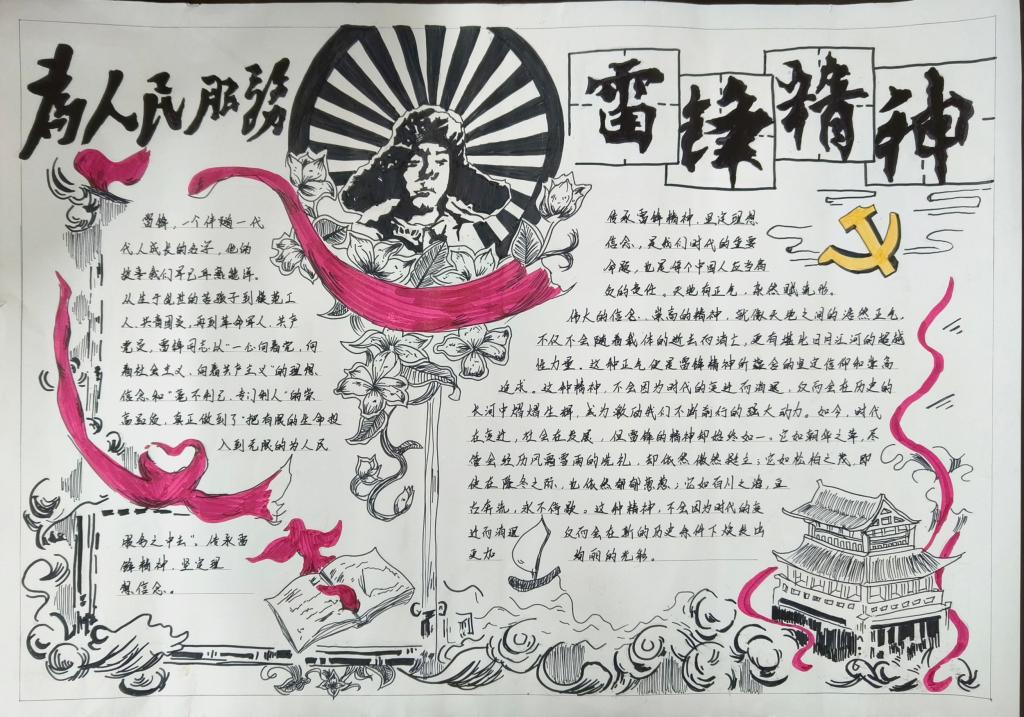 為人民服務
雷锋精神
雷锋,一个伴随一代
代人成长的名字,他的
故事我们早已耳熟能详。
从生于忧患的苦孩子到模范工
人、共青团员,再到革命军人、共产
党员,雷锋同志以“一心向着党,向
着社会主义,向着共产主义”的理想、
信念,和“毫不利己、专门利人”的崇
高品质,真正做到了“把有限的生命投
入到无限的为人民
服务之中去”。传承雷
锋精神,坚定理
想信念。
传承雷锋精神,坚定理想
信念,是我们时代的重要
命题,也是每个中国人应当肩
负的责任。天地有正气,杂然赋流形。
伟大的信念、崇高的精神,就像天地之间的浩然正气,
不仅不会随着载体的逝去而消亡,更有堪比日月江河的超越
性力量。这种正气便是雷锋精神所蕴含的坚定信仰和崇高
追求。这种精神,不会因为时代的变迁而消逝,反而会在历史的
长河中熠熠生辉,成为激励我们不断前行的强大动力。如今,时代
在变迁,社会在发展,但雷锋的精神却始终如一。它如翱翔之隼,尽
管会经历风霜雪雨的洗礼,却依然傲然挺立;它如松柏之茂,即
使在隆冬之际,也依然郁郁葱葱;它如百川之海,亘
古奔流,永不停歇。这种精神,不会因为时代的变
迁而消逝 反而会在新的历史条件下焕发出
更加 绚丽的光彩。